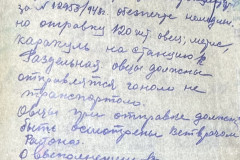 за № 12458/448. обеспечте немедлен.
но отправку 120 шт. овец; мериc,
каракуль на станцию р.
Раздельная овцы должны
отправляться гоном не
транспортом.
Овцы при отправке должны
быть осмотрены Ветврачом
Района.
О выполнении